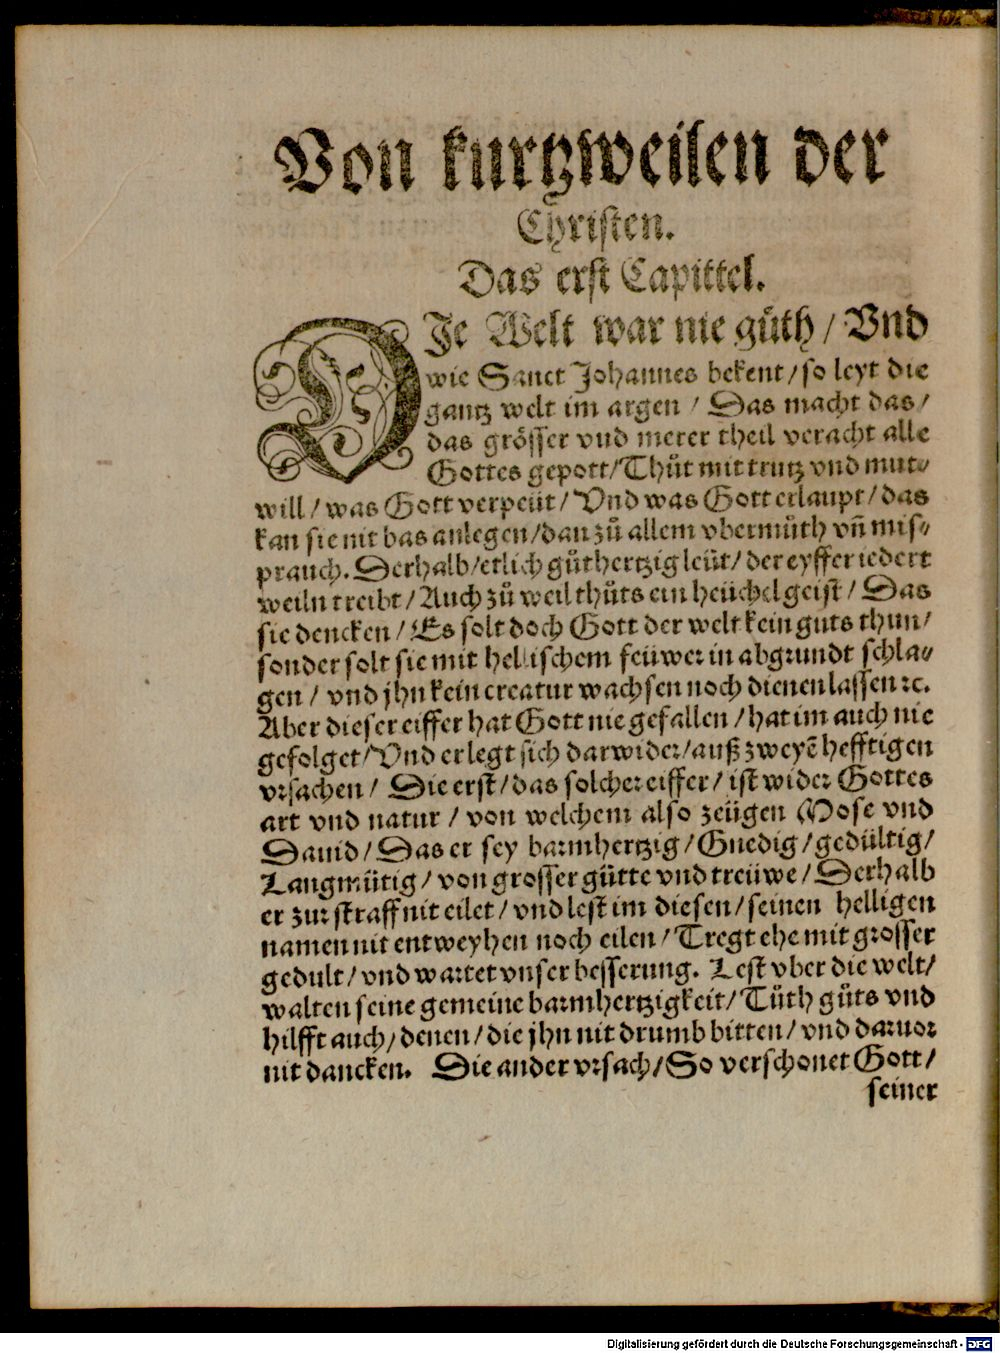 Von kurtzweilen der
Christen.
Das erst Capittel.
DIe Welt war nie gůth / Vnd
wie Sanct Johannes bekent / so leyt die
gantz welt im argen / Das macht das /
das grösser vnd merer theil veracht alle
Gottes gepott / Thůt mit trutz vnd mut⸗
will / was Gott verpeüt / Vnd was Gott erlaupt / das
kan sie nit bas anlegen / dan zů allem vbermůth vn̄ mis⸗
prauch. Derhalb / etlich gůthertzig leüt / der eyffer iedert
weiln treibt / Auch zů weil thůts ein heüchel geist / Das
sie dencken / Es solt doch Gott der welt kein guts thun /
sonder solt sie mit hellischem feüwer in abgrundt schla⸗
gen / vnd jhn kein creatur wachsen noch dienen lassen ꝛc.
Aber dieser eiffer hat Gott nie gefallen / hat im auch nie
gefolget / Vnd er legt sich darwider / auß zweyē hefftigen
vrsachen / Die erst / das solcher eiffer / ist wider Gottes
art vnd natur / von welchem also zeügen Mose vnd
Dauid / Das er sey barmhertzig / Gnedig / gedültig /
Langmütig / von grosser gütte vnd treüwe / Derhalb
er zur straff nit eilet / vnd lest im diesen / seinen helligen
namen nit entweyhen noch eilen / Tregt ehe mit grosser
gedult / vnd wartet vnser besserung. Lest vber die welt /
walten seine gemeine barmhertzigkeit / Tůth gůts vnd
hilfft auch / denen / die jhn nit drumb bitten / vnd daruor
nit dancken. Die ander vrsach / So verschonet Gott /
seiner
Digitalisierung gefördert durch die Deutsche Forschungsgemeinschaft - DFG